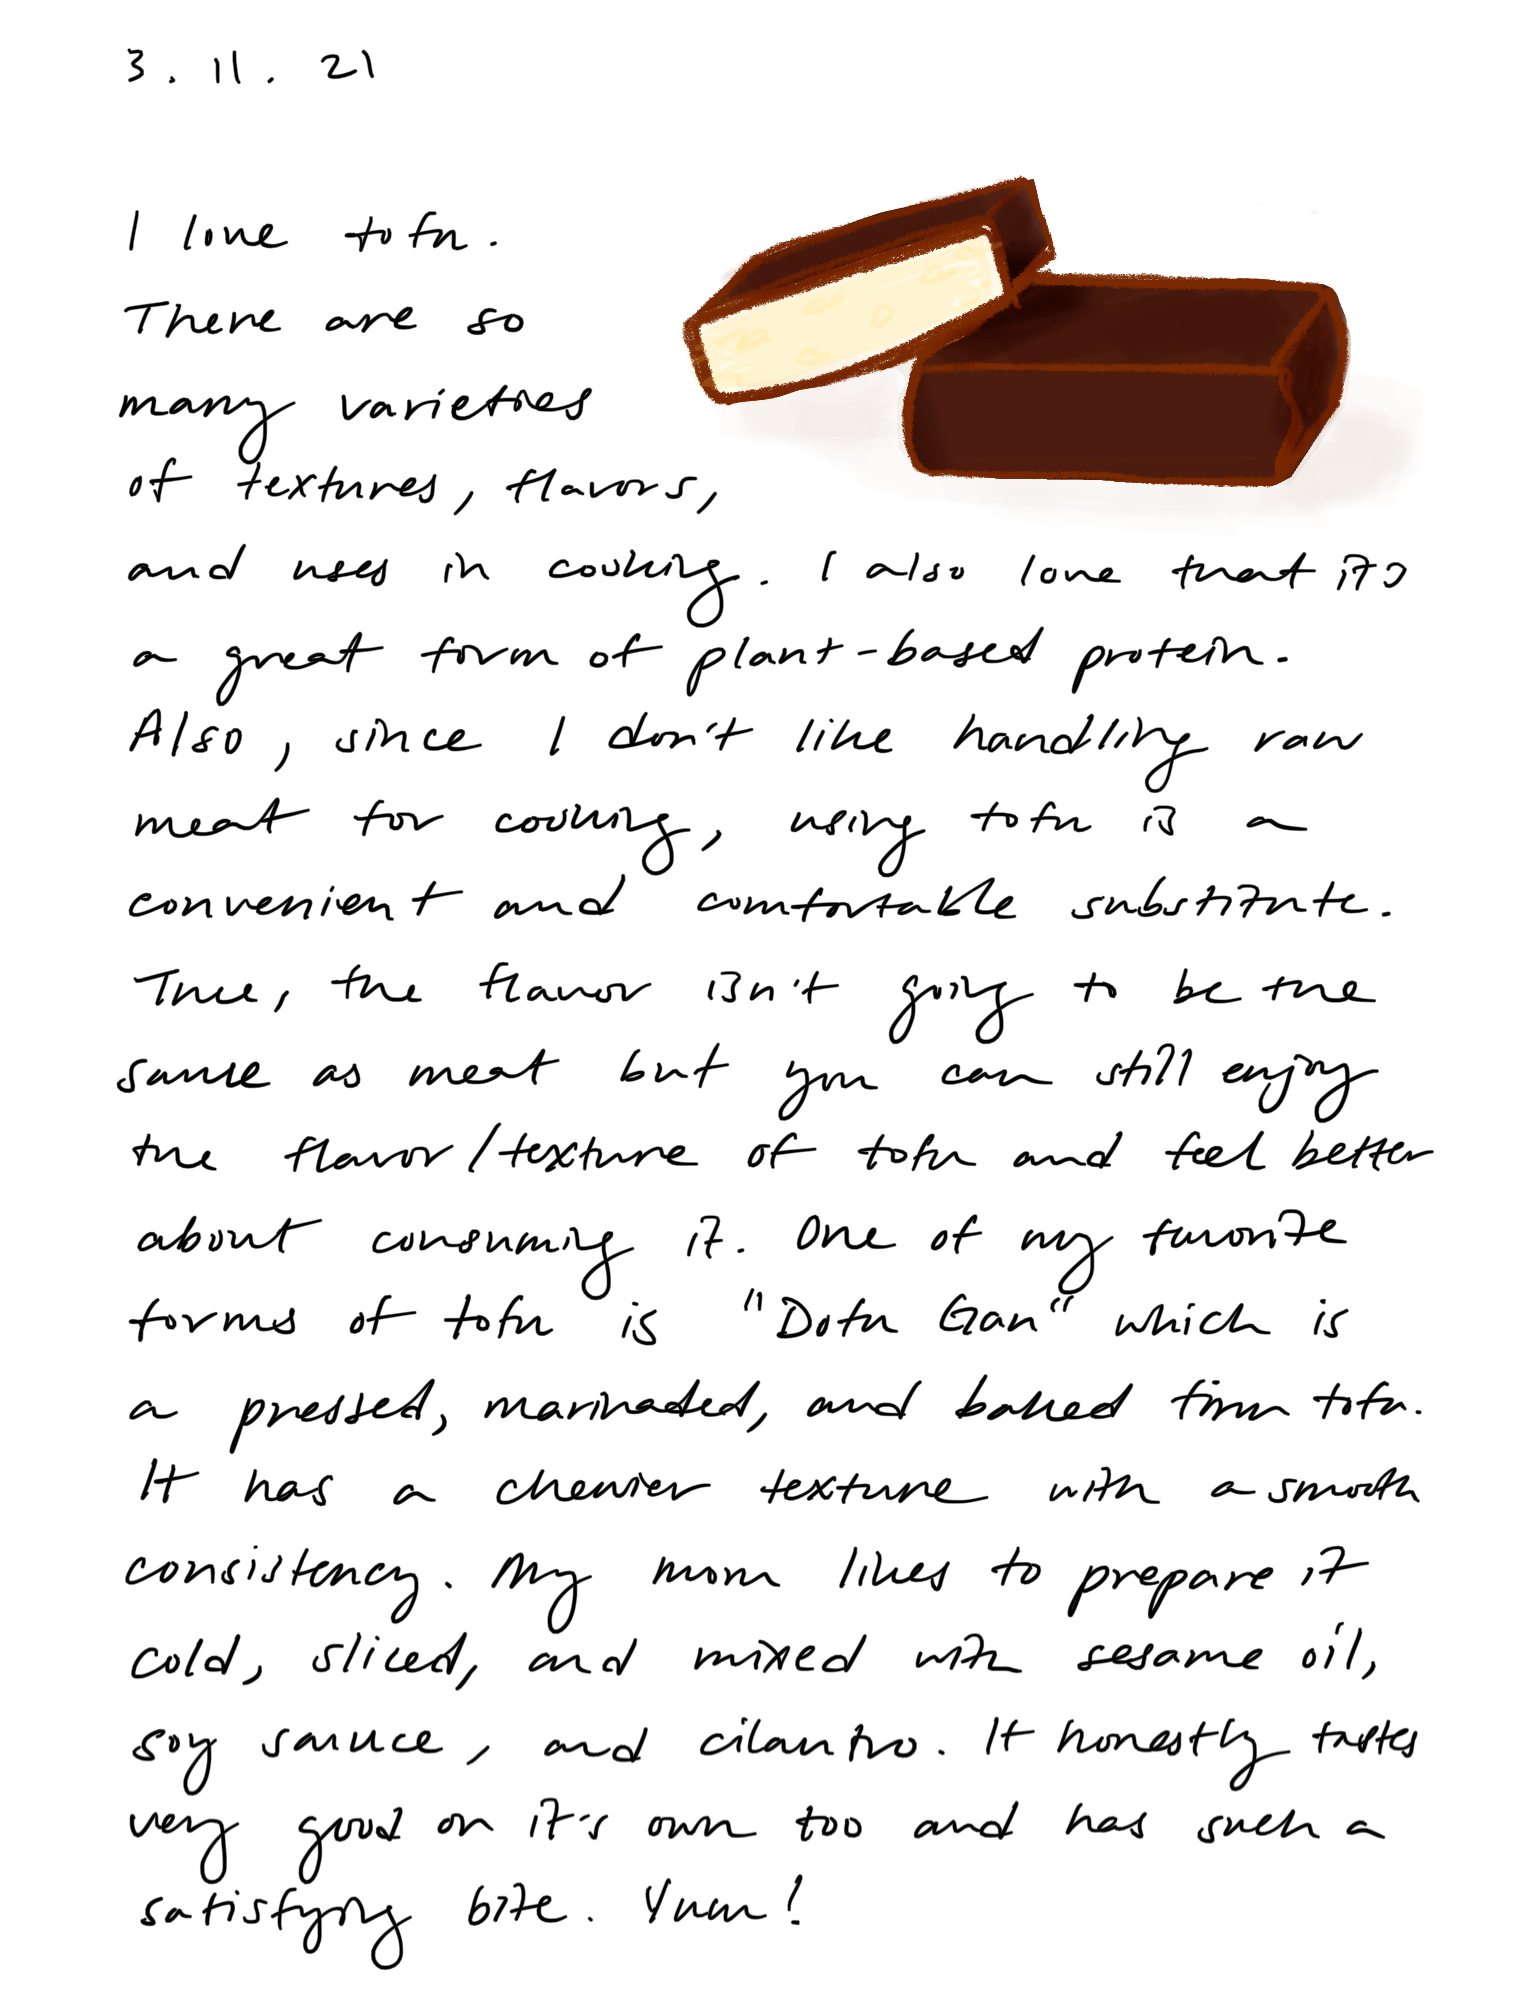 3. 11. 21
I love tofu.
There are so
many varieties
of textures, flavors,
and uses in cooking. I also love that it's
a great form of plant-based protein.
Also, since I don't like handling raw
meat for cooking, using tofu is a
convenient and comfortable substitute.
True, the flavor isn't going to be the
same as meat but you can still enjoy
the flavor/texture of tofu and feel better
about consuming it. One of my favorite
forms of tofu is "Dofu Gan" which is
a pressed, marinated, and baked firm tofu.
It has a chewier texture with a smooth
consistency. My mom likes to prepare it
cold, sliced, and mixed with sesame oil,
soy sauce, and cilantro. It honestly tastes
very good on it's own too and has such a
satisfying bite. Yum!